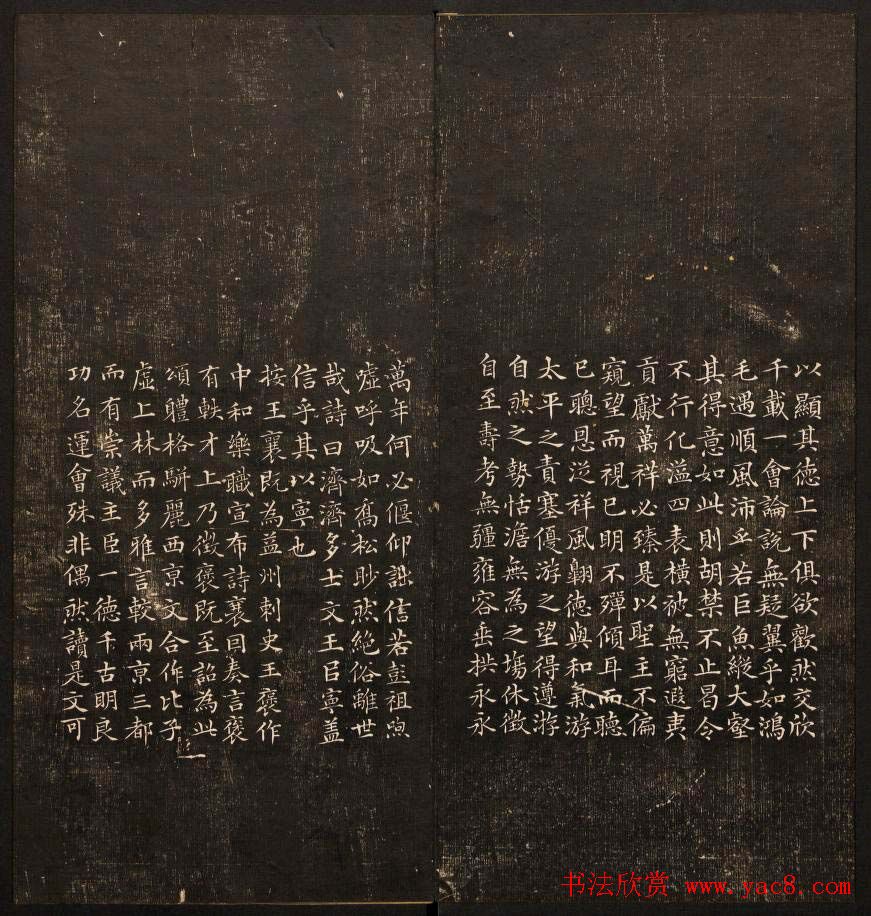 以顯其德上下俱欲歡然交欣
千載一會論說無疑翼乎如鴻
毛遇順風沛乎若巨魚縱大壑
其得意如此則胡禁不止曷令
不行化溢四表橫被無窮遐夷
貢獻萬祥必臻是以聖主不偏
窺望而視已明不殫傾耳而聽
已聰恩從祥風翺德與和氣游
太平之責塞優游之望得遵游
自然之勢恬澹無為之場休徵
自至壽考無疆雍容垂拱永永
萬年何必偃仰詘信若彭祖喣
噓呼吸如喬松眇然絕俗離世
哉詩曰濟濟多士文王㠯寧蓋
信乎其以寧也
按王襄既為益州刺史王褒作
中和樂職宣布詩襄回奏言褒
有軼才上乃徵褒既至詔為此
頌體格駢麗西京文合作比子
虛上林而多雅言較兩京三都
而有崇議主臣一德千古明良
功名運會殊非偶然讀是文可
书法欣赏 www.yac8.com